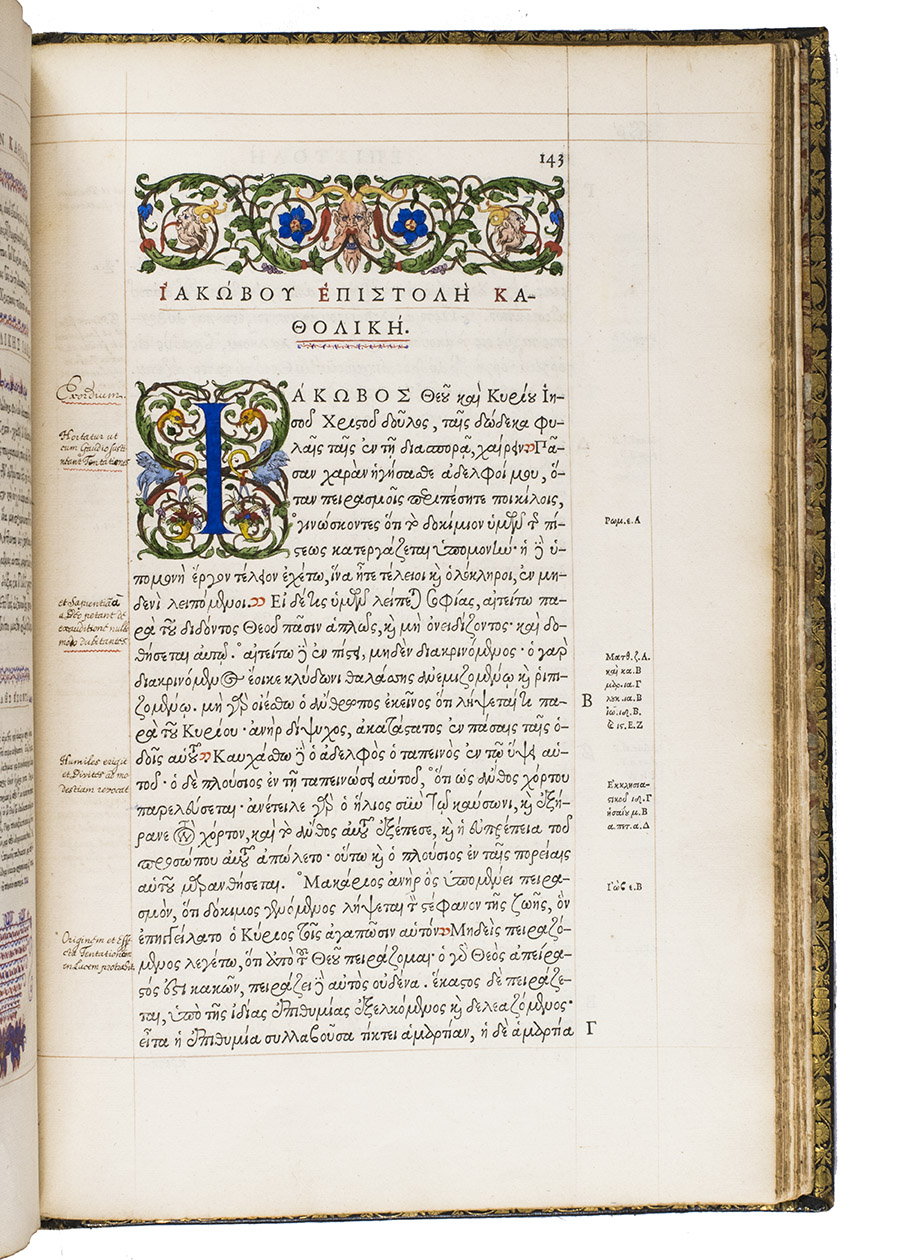 143
ἸΑΚΏΒΟΥ ἘΠΙΣΤΟΛῊ ΚΑ-
ΘΟΛΙΚΉ.
Exordium.
Hortatur ut
cum Gaudio susti
neant Tentationes
et Sapientiã
a Deo petant de
exauditione nullo
modo dubitantes
Humiles erigit
et Divites ad mo
destiam revocat
Originem et Effe
cta Tentationum
in Lucem protrahit
ἸΆΚΩΒΟΣ Θεοῦ καὶ Κυρίου Ἰη-
σοῦ Χριστοῦ δοῦλος, ταῖς δώδεκα φυ-
λαῖς ταῖς ἐν τῇ διασπορᾷ, χαίρειν. Πᾶ-
σαν χαρὰν ἡγήσασθε ἀδελφοί μου, ὅ-
ταν πειρασμοῖς περιπέσητε ποικίλοις,
γινώσκοντες ὅτι τὸ δοκίμιον ὑμῶν τῆς πί-
στεως κατεργάζεται ὑπομονήν· ἡ δὲ ὑ-
πομονὴ ἔργον τέλειον ἐχέτω, ἵνα ἦτε τέλειοι καὶ ὁλόκληροι, ἐν μη-
δενὶ λειπόμενοι. Εἰ δέ τις ὑμῶν λείπεται σοφίας, αἰτείτω πα-
ρὰ τοῦ διδόντος Θεοῦ πᾶσιν ἁπλῶς, καὶ μὴ ὀνειδίζοντος· καὶ δο-
θήσεται αὐτῷ. αἰτείτω δὲ ἐν πίστει, μηδὲν διακρινόμενος· ὁ γὰρ
διακρινόμενος ἔοικε κλύδωνι θαλάσσης ἀνεμιζομένῳ καὶ ῥιπι-
ζομένῳ. μὴ γὰρ οἰέσθω ὁ ἄνθρωπος ἐκεῖνος ὅτι λήψεταί τι πα-
ρὰ τοῦ Κυρίου· ἀνὴρ δίψυχος, ἀκατάστατος ἐν πάσαις ταῖς ὁ-
δοῖς αὐτοῦ. Καυχάσθω δὲ ὁ ἀδελφὸς ὁ ταπεινὸς ἐν τῷ ὕψει αὐ-
τοῦ· ὁ δὲ πλούσιος ἐν τῇ ταπεινώσει αὐτοῦ, ὅτι ὡς ἄνθος χόρτου
παρελεύσεται· ἀνέτειλε γὰρ ὁ ἥλιος σὺν τῷ καύσωνι, καὶ ἐξή-
ρανε τὸν χόρτον, καὶ τὸ ἄνθος αὐτοῦ ἐξέπεσε, καὶ ἡ εὐπρέπεια τοῦ
προσώπου αὐτοῦ ἀπώλετο· οὕτω καὶ ὁ πλούσιος ἐν ταῖς πορείαις
αὐτοῦ μαρανθήσεται. Μακάριος ἀνὴρ ὃς ὑπομένει πειρα-
σμόν, ὅτι δόκιμος γενόμενος λήψεται τὸν στέφανον τῆς ζωῆς, ὃν
ἐπηγγείλατο ὁ Κύριος τοῖς ἀγαπῶσιν αὐτόν. Μηδεὶς πειραζό-
μενος λεγέτω, ὅτι ἀπὸ τοῦ Θεοῦ πειράζομαι· ὁ γὰρ Θεὸς ἀπείρα-
στός ἐστι κακῶν, πειράζει δὲ αὐτὸς οὐδένα. ἕκαστος δὲ πειράζε-
ται, ὑπὸ τῆς ἰδίας ἐπιθυμίας ἐξελκόμενος καὶ δελεαζόμενος·
εἶτα ἡ ἐπιθυμία συλλαβοῦσα τίκτει ἁμαρτίαν, ἡ δὲ ἁμαρτία
Ρωμ. ε. Α
Ματθ. ζ. Α.
καὶ κα. Β
μαρ. ια. Γ
λυκ. ια. Β
ἰω. ιδ. Β.
& ις. Ε. Ζ
Β
Ἐκκλησια-
στικοῦ ιδ. Γ
ἡσαΐου μ. Β
α. πετ. α. Δ
Ἰὼβ ε. Β
Γ